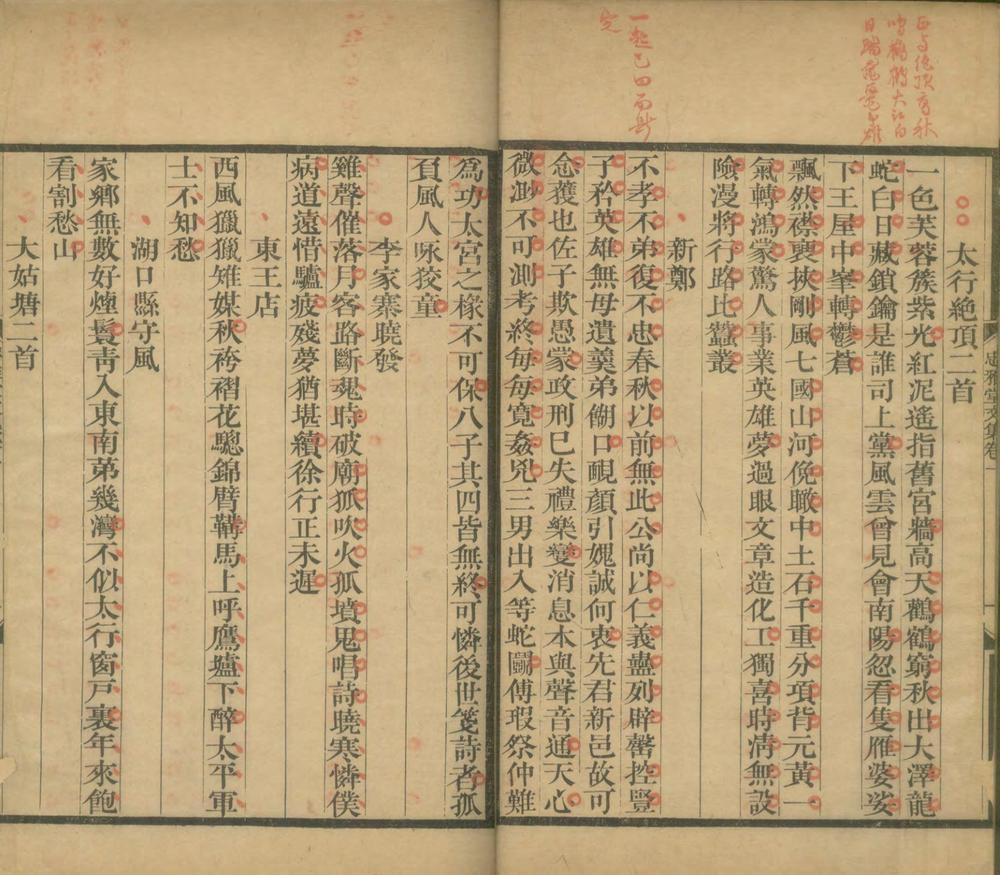 太行絶頂二首
一色芙蓉簇紫光紅泥遙指舊宮牆高天鸛鶴窮秋出大澤龍
蛇白日藏鎖鑰是誰司上黨風雲曾見會南陽忽看隻雁婆娑
下王屋中峯轉鬱蒼
飄然襟袠挾剛風七國山河俛瞰中土石千重分項背元黃一
氣轉鴻蒙驚人事業英雄夢過眼文章造化工獨喜時淸無設
險漫將行路比蠶叢
新鄭
不孝不弟復不忠春秋以前無此公尚以仁義蠱列辟罄控豎
子矜英雄無母遺羹弟餬口靦顏引媿誠何衷先君新邑故可
念獲也佐子欺愚蒙政刑已失禮樂變消息本與聲音通天心
微渺不可測考終每每寬姦兇三男出入等蛇鬭傅瑕祭仲難
爲功太宮之椽不可保八子其四皆無終可憐後世箋詩者孤
負風人咏狡童
李家寨曉發
雞聲催落月客路斷䰟時破廟狐吹火孤墳鬼唱詩曉寒憐僕
病道遠惜驢疲殘夢猶堪續徐行正未遲
東王店
西風獵獵雉媒秋袴褶花驄錦臂鞲馬上呼鷹壚下醉太平軍
士不知愁
湖口縣守風
家鄉無數好煙鬟靑入東南弟幾灣不似太行窗戸裏年來飽
看割愁山
大姑塘二首
忠雅堂文集卷一